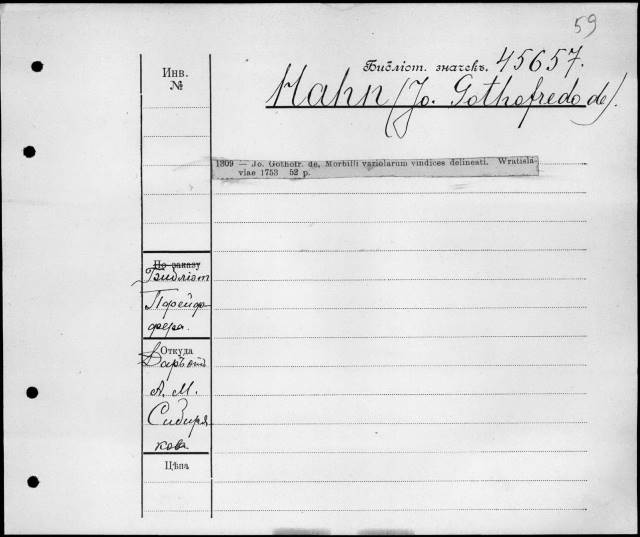 59
Инв.
№
Библіот. значекъ. 45657.
Hahn (Jo. Gothofredo de).
1309 — Jo. Gothofr. de, Morbilli variolarum vindices delineati. Wratisla-
viae 1753 52 p.
По заказу
Библіот
Пфейф-
фера.
Откуда
Даръ отъ
А. М.
Сибиря
кова
Цѣна